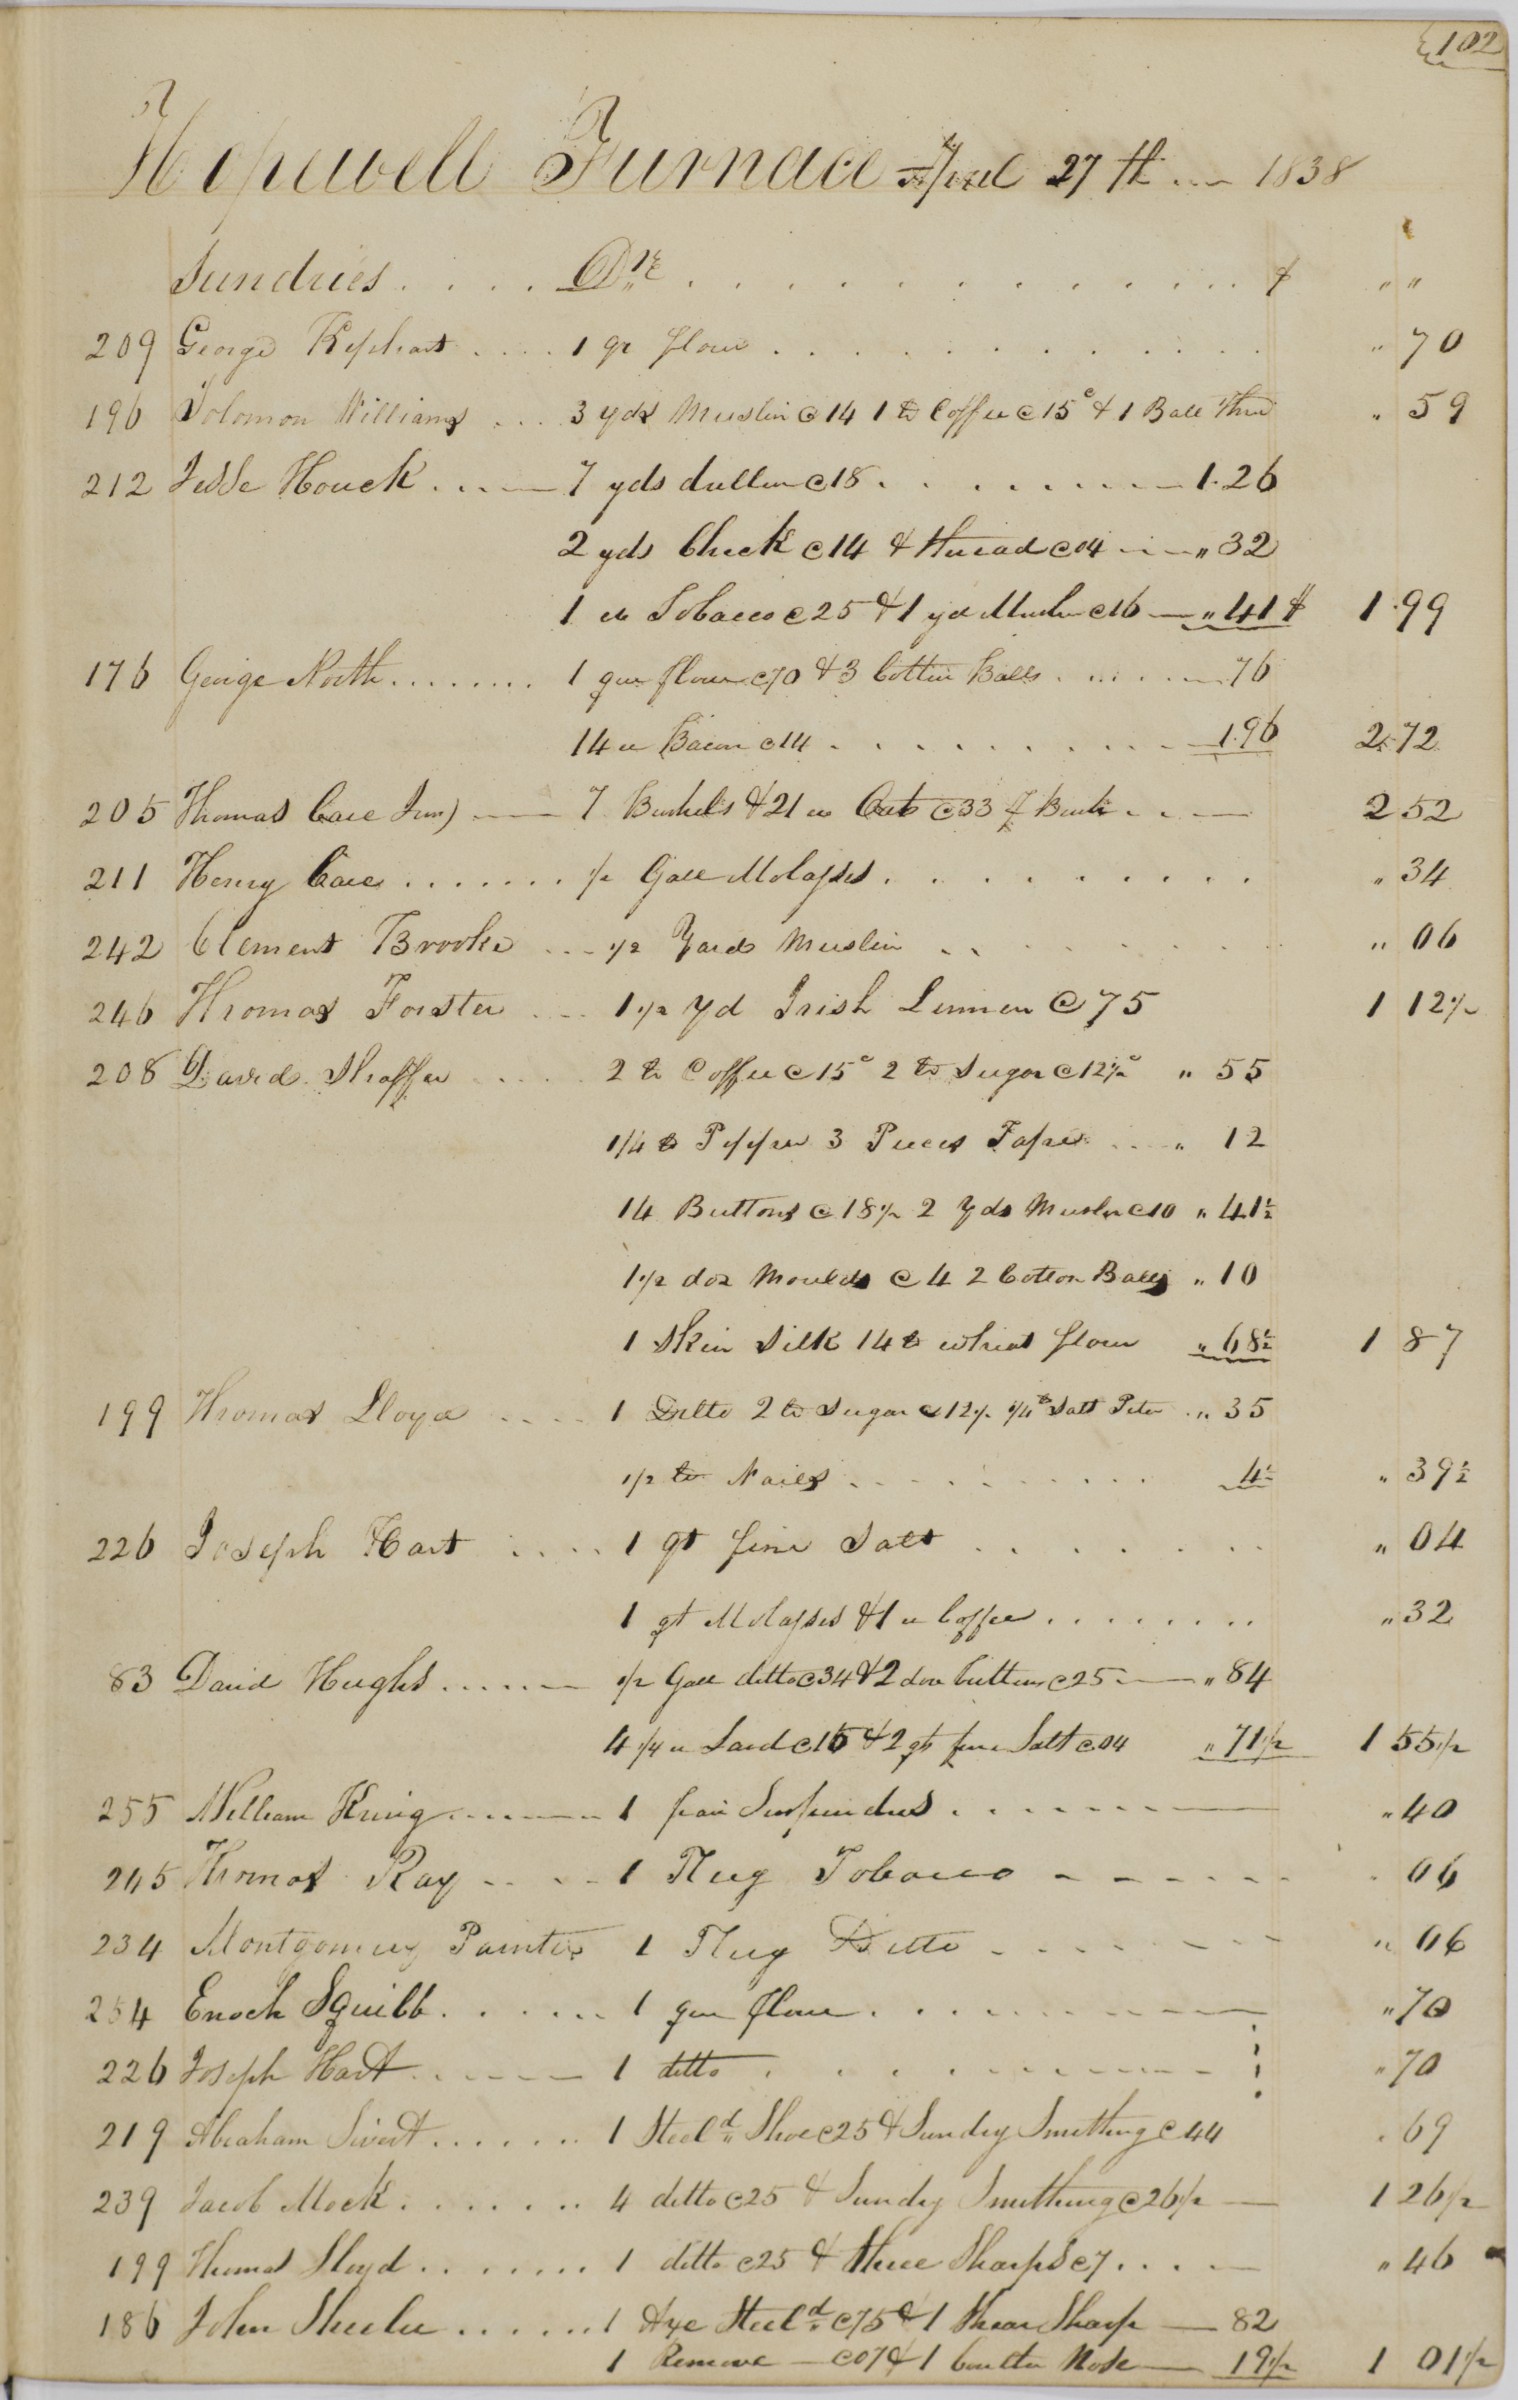 102
Hopewell Furnace April 27th 1838
Sundries . . . . Drs . . . . $ " "
209 George Kephart . . . . 1 qr flour . . . . " 70
196 Solomon Williams . . . 3 yds Muslin @ 14 1 lb Coffee @ 15c & 1 Ball Thrd " 59
212 Jesse Houck . . . . 7 yds drillen @ 18 . . . . 1.26
2 yds Check @ 14 & thread @ 04 " 32
1 lb Tobacco @ 25 & 1 yd Muslin @ 16 " 41 $ 1.99
176 George North . . . . 1 qur flour @ 70 & 3 Cotton Balls . . . . 76
14 lb Bacon @ 14 . . . . 1.96 2.72
205 Thomas Care Junr 7 Bushels & 21 lb Oats @ 33 p Bush . . . 2 52
211 Henry Care . . . . 1/2 Gall Molasses . . . . " 34
242 Clement Brooke . . . 1/2 Yard Muslin . . . . " 06
246 Thomas Forster . . . 1 1/2 yd Irish Linnen @ 75 1 12 1/2
208 David Shaffer . . . . 2 lb Coffee @ 15c 2 lb Sugar @ 12 1/2c " 55
1/4 lb Pepper 3 Pieces Tape . . . " 12
14 Buttons @ 18 1/2 2 Yds Muslin @ 10 " 41 1/2
1 1/2 doz Moulds @ 4 2 Cotton Balls " 10
1 Skin Silk 14 lb wheat flour " 68 1/2 1 87
199 Thomas Lloyd . . . . 1 Ditto 2 lb Sugar @ 12 1/2 1/4 lb Salt Peter . " 35
1/2 lb Nails . . . . 4 1/2 " 39 1/2
226 Joseph Hart . . . . 1 qt fine Salt . . . . " 04
1 qt Molasses & 1 lb Coffee . . . . " 32
83 David Hughs . . . . 1/2 Gall ditto @ 34 & 2 doz buttons @ 25 " 84
4 1/4 lb Lard @ 15 & 2 qts fine Salt @ 04 " 71 1/2 1 55 1/2
255 William King . . . . 1 pair Suspenders . . . . " 40
245 Thomas Ray . . . . 1 Plug Tobacco . . . . " 06
234 Montgomery Painter 1 Plug Ditto . . . . " 06
254 Enoch Squibb . . . . 1 qur flour . . . . " 70
226 Joseph Hart . . . . 1 ditto . . . . " 70
219 Abraham Sivert . . . . 1 Steeld Shoe @ 25 & Sundry Smithing @ 44 " 69
239 Jacob Mock . . . . 4 ditto @ 25 & Sundry Smithing @ 26 1/2 1 26 1/2
199 Thomas Lloyd . . . . 1 ditto @ 25 & three Sharps @ 7 . . . . " 46
186 John Sheeler . . . . 1 Axe Steeld @ 75 & 1 Shear Sharp 82
1 Remove @ 07 & 1 Coulter Nose 19 1/2 1 01 1/2